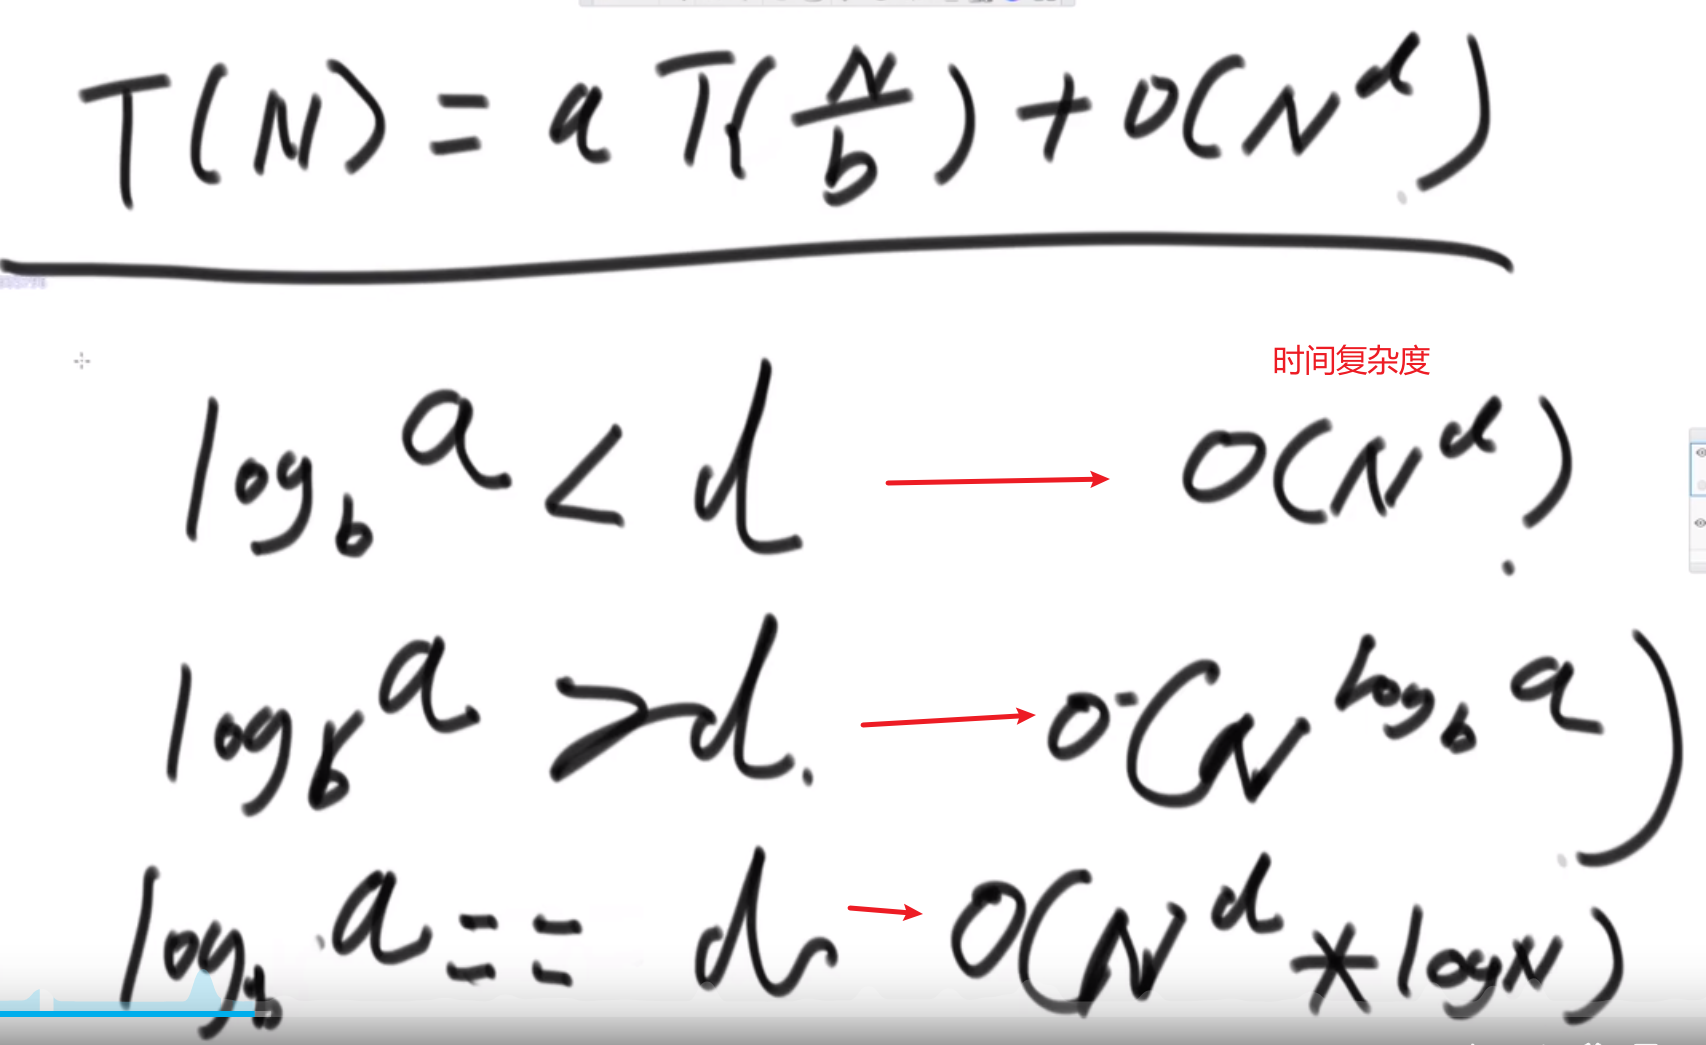 T(N) = a T(N/b) + O(N^d)
时间复杂度
log_b a < d → O(N^d)
log_b a > d → O(N^{log_b a})
log_b a == d → O(N^d * logN)